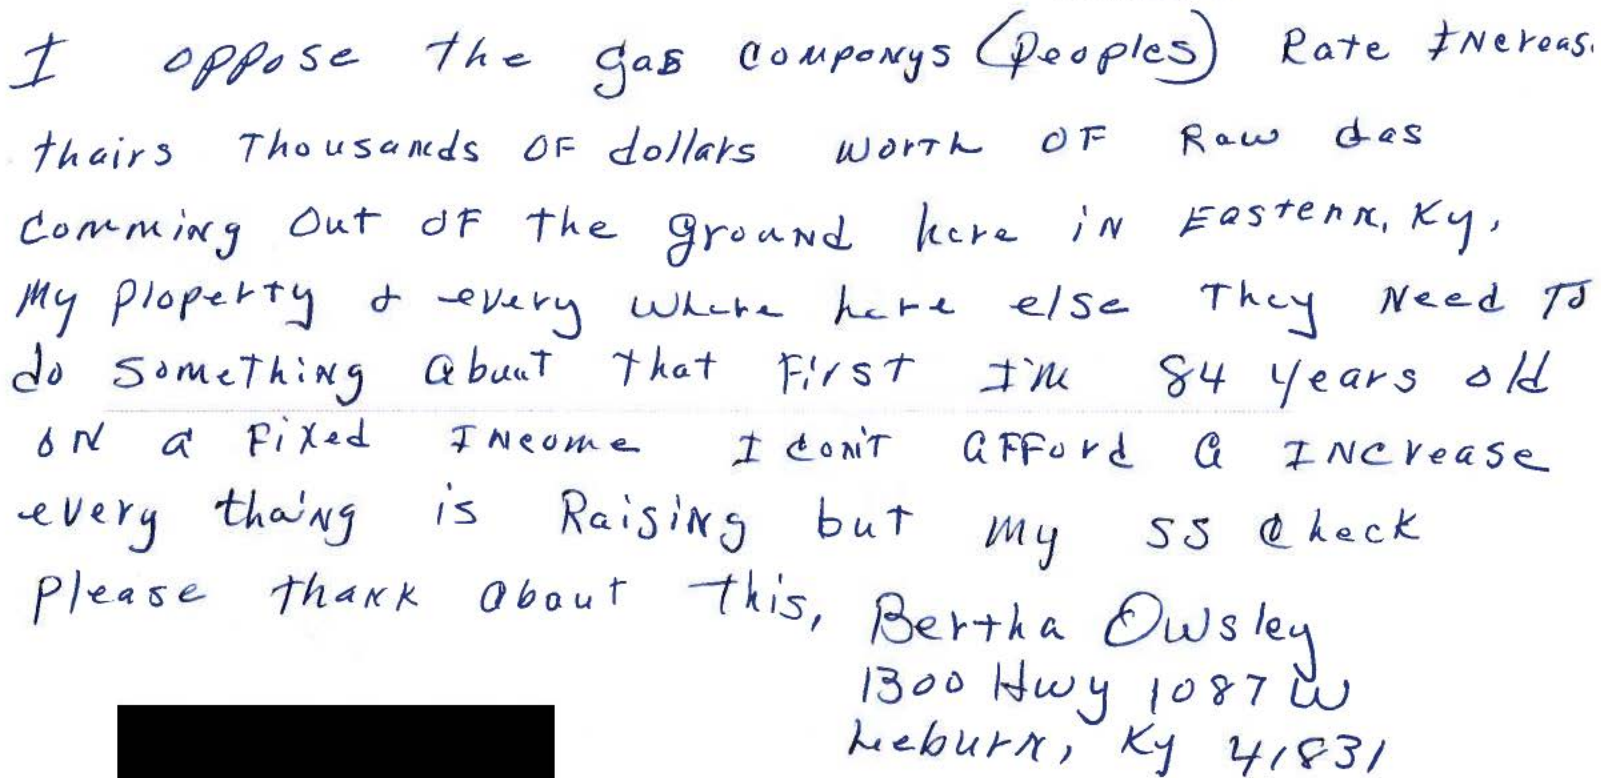 I oppose the gas componys (Peoples) Rate INcreas
thairs Thousands OF dollars worth OF Raw Gas
Comming Out OF the ground here iN Eastern, Ky,
My Ploperty & every where here else They Need To
do something abuut that First I'm 84 years old
oN a Fixed INcome I con't aFFord a INcrease
every thaing is Raising but my SS check
Please thank about this, Bertha Owsley
1300 Hwy 1087 W
Leburn, Ky 41831